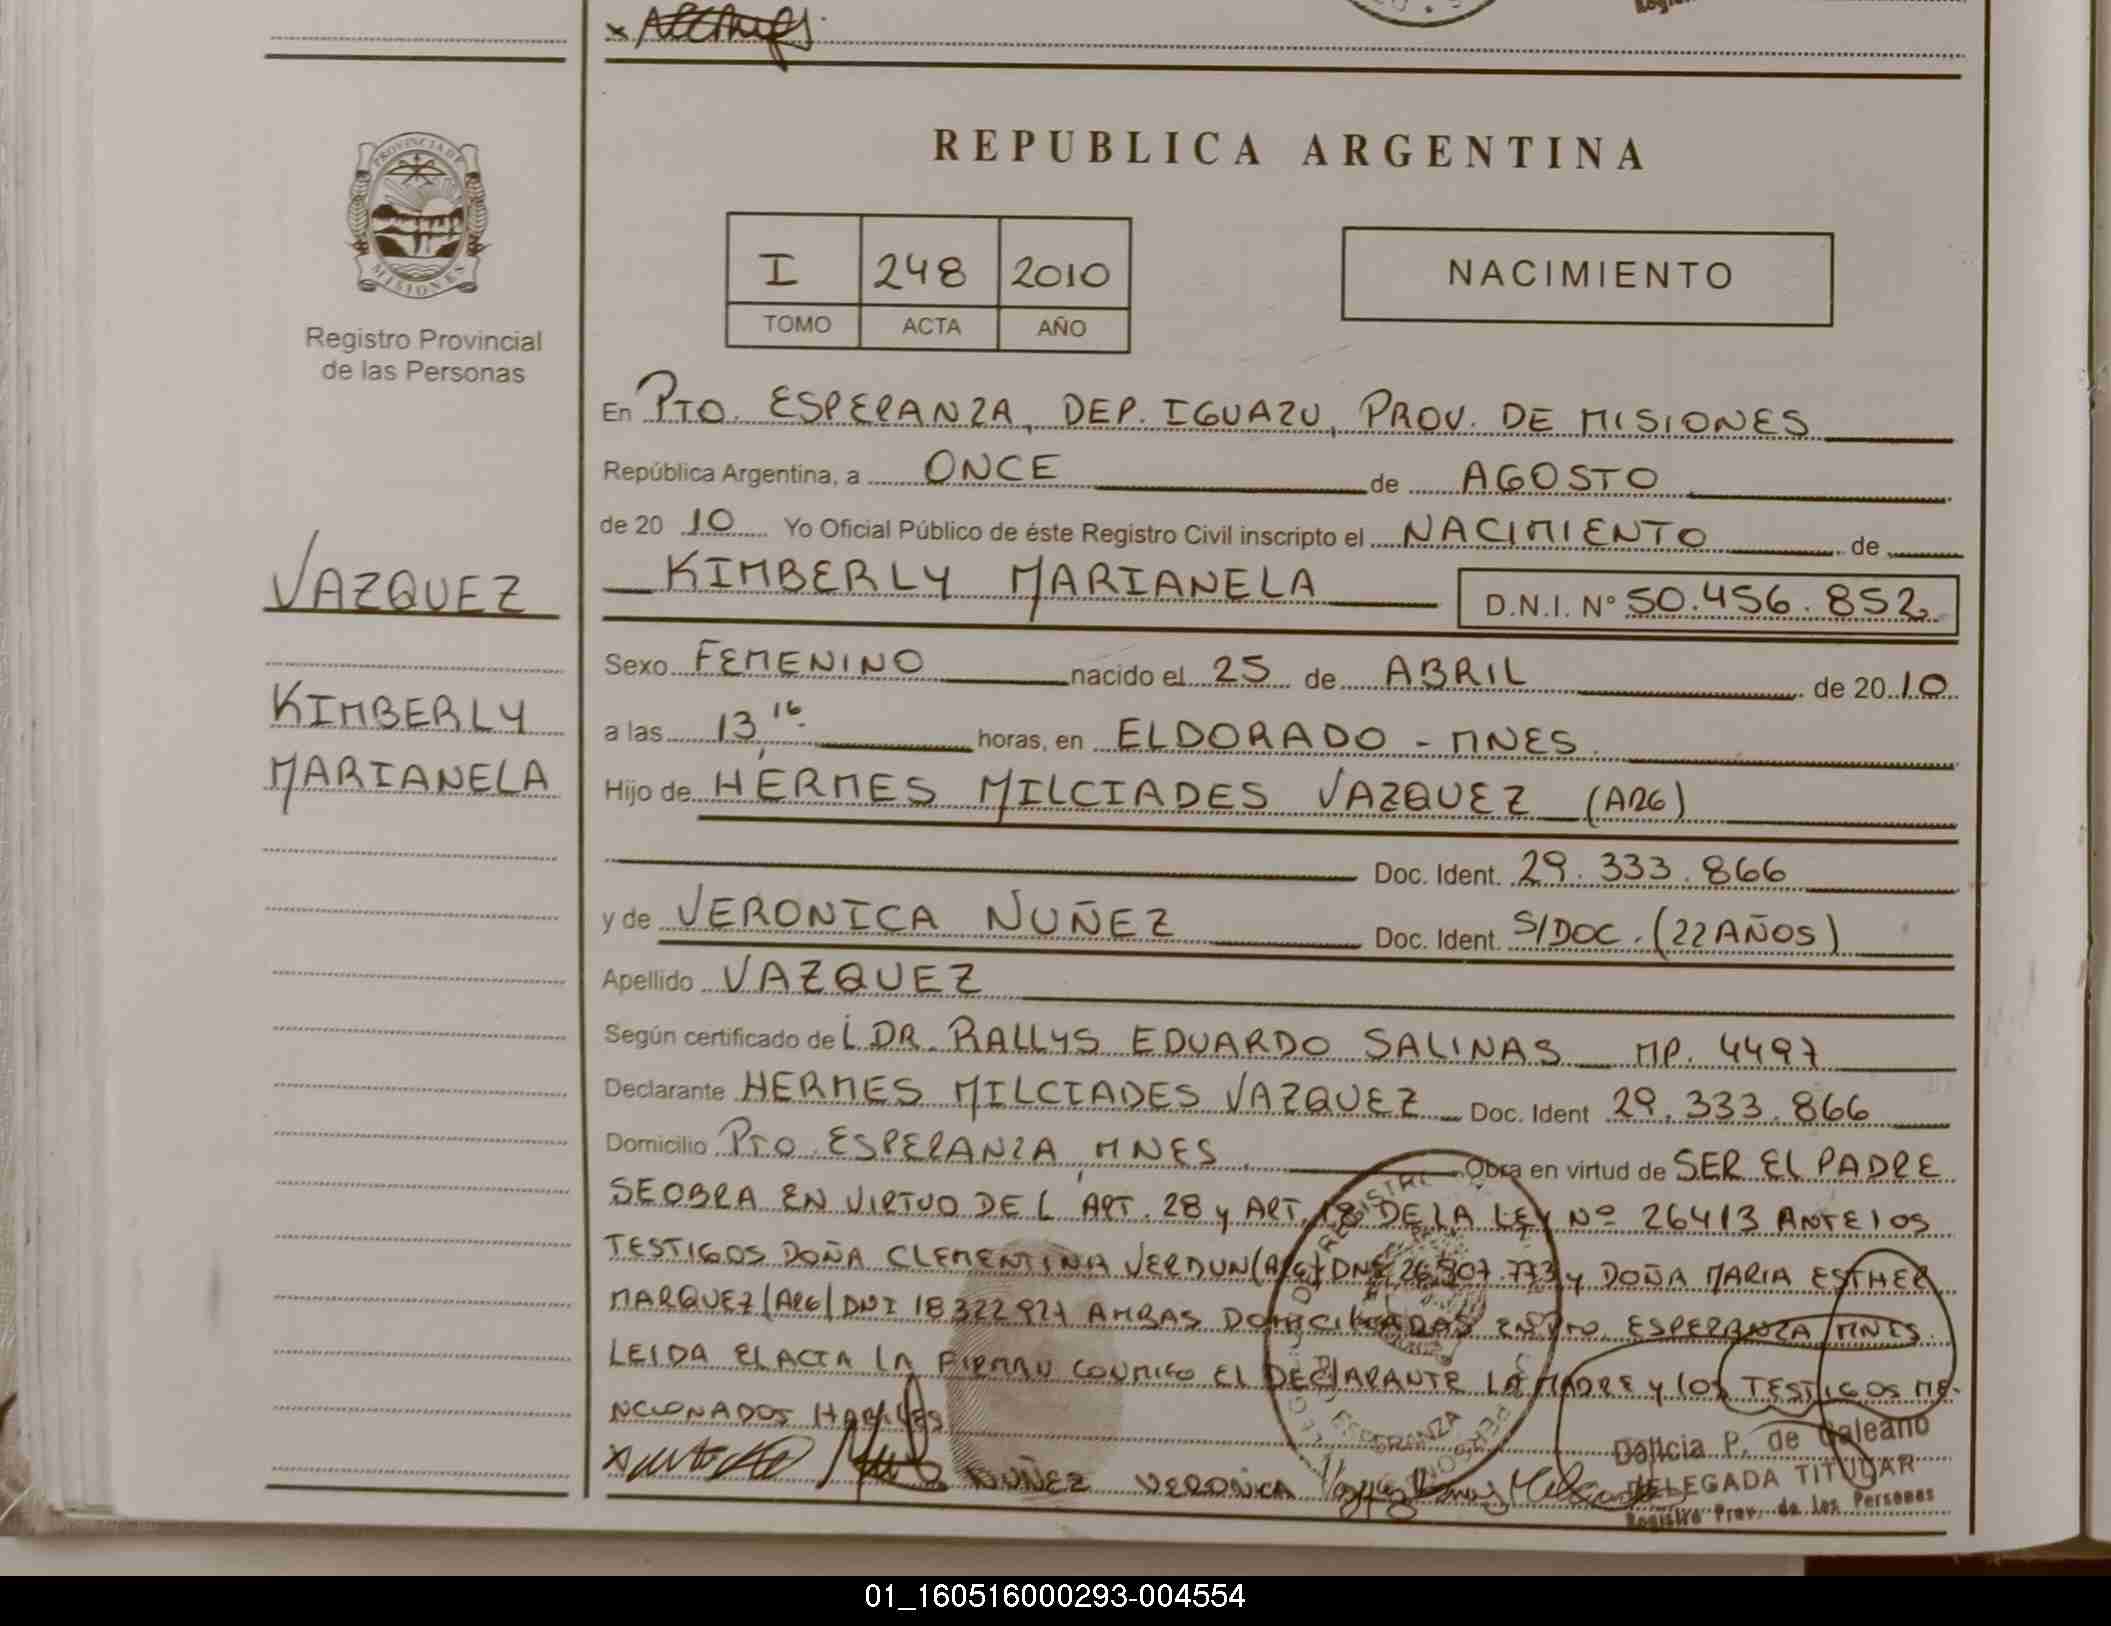 PROVINCIA DE
MISIONES
Registro Provincial
de las Personas
VAZQUEZ
KIMBERLY
MARIANELA
REPUBLICA ARGENTINA
I 248 2010
TOMO ACTA AÑO
NACIMIENTO
En PTO. ESPERANZA, DEP. IGUAZU, PROV. DE MISIONES
República Argentina, a ONCE de AGOSTO
de 20 10 Yo Oficial Público de éste Registro Civil inscripto el NACIMIENTO de
KIMBERLY MARIANELA D.N.I. Nº 50.456.852
Sexo FEMENINO nacido el 25 de ABRIL de 20 10
a las 13,16 horas, en ELDORADO - MNES.
Hijo de HERMES MILCIADES VAZQUEZ (ARG)
Doc. Ident. 29.333.866
y de VERONICA NUÑEZ Doc. Ident. S/DOC. (22 AÑOS)
Apellido VAZQUEZ
Según certificado de L DR. RALLYS EDUARDO SALINAS MP. 4497
Declarante HERMES MILCIADES VAZQUEZ Doc. Ident 29.333.866
Domicilio PTO. ESPERANZA, MNES. Obra en virtud de SER EL PADRE
SE OBRA EN VIRTUD DE L ART. 28 y ART. 18 DE LA LEY Nº 26413 ANTE LOS
TESTIGOS DOÑA CLEMENTINA VERDUN (ARG) DNI 26.907.773 y DOÑA MARIA ESTHER
MARQUEZ (ARG) DNI 18322927 AMBAS DOMICILIADAS EN PTO. ESPERANZA MNES.
LEIDA EL ACTA LA FIRMAN CONMIGO EL DECLARANTE LA MADRE y LOS TESTIGOS ME-
NCIONADOS HABILES
Dalicia P. de Galeano
DELEGADA TITULAR
Registro Prov. de las Personas
NUÑEZ VERONICA
01_160516000293-004554